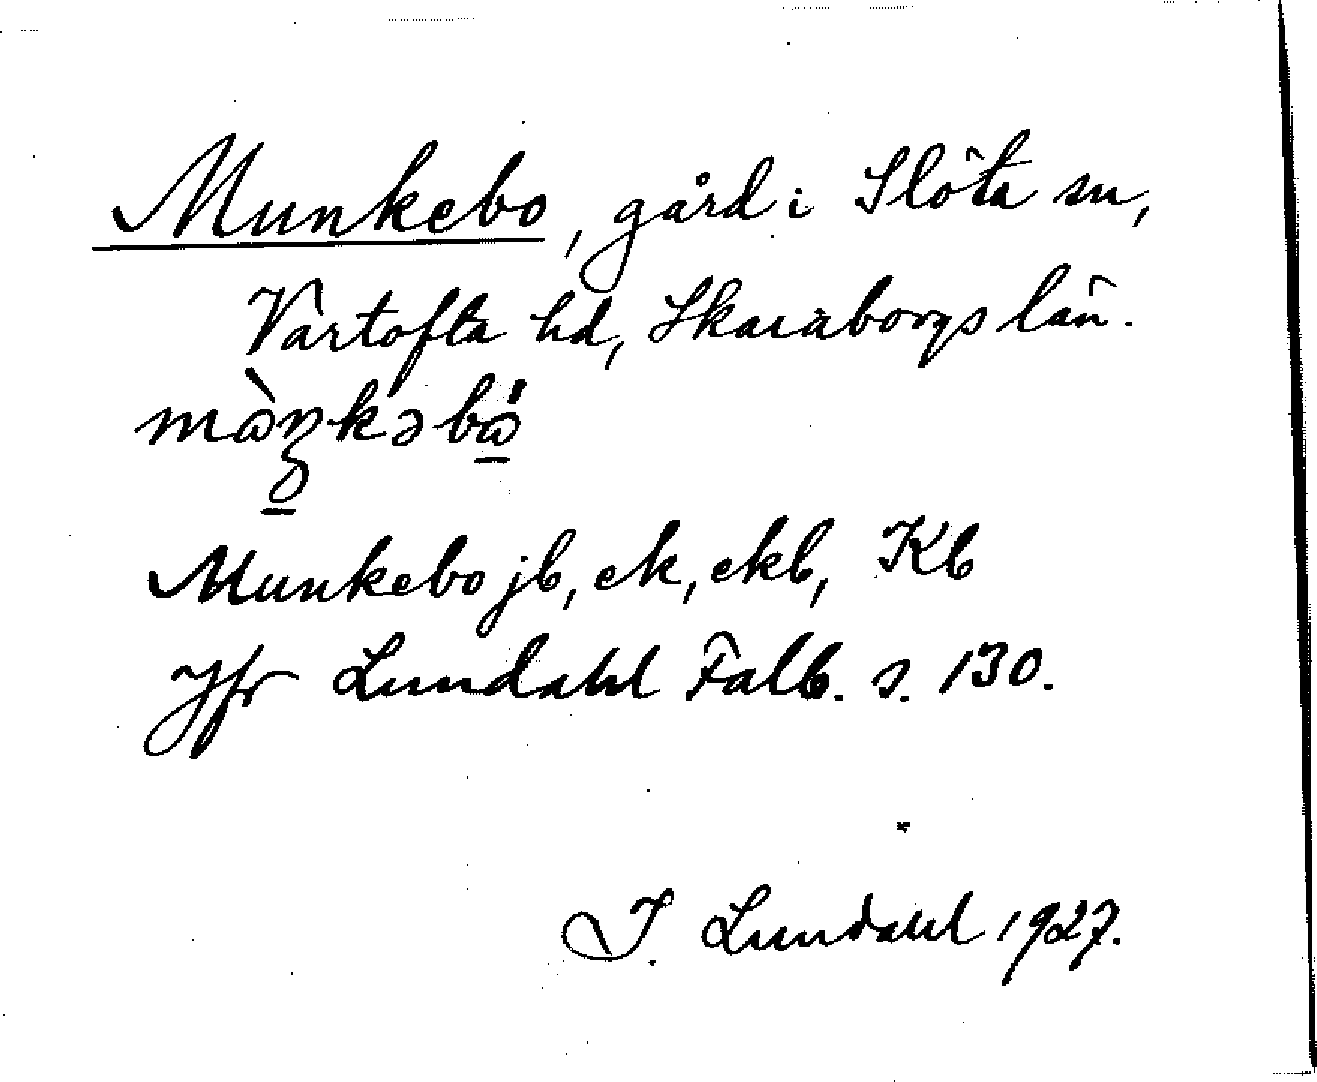 Munkebo, gård i Slöta sn,
Vartofta hd, Skaraborgs län.
mὼŋkəbώ
Munkebo jb, ek, ekb, Kb
Jfr Lundahl Falb. s. 130.
I. Lundahl 1927.